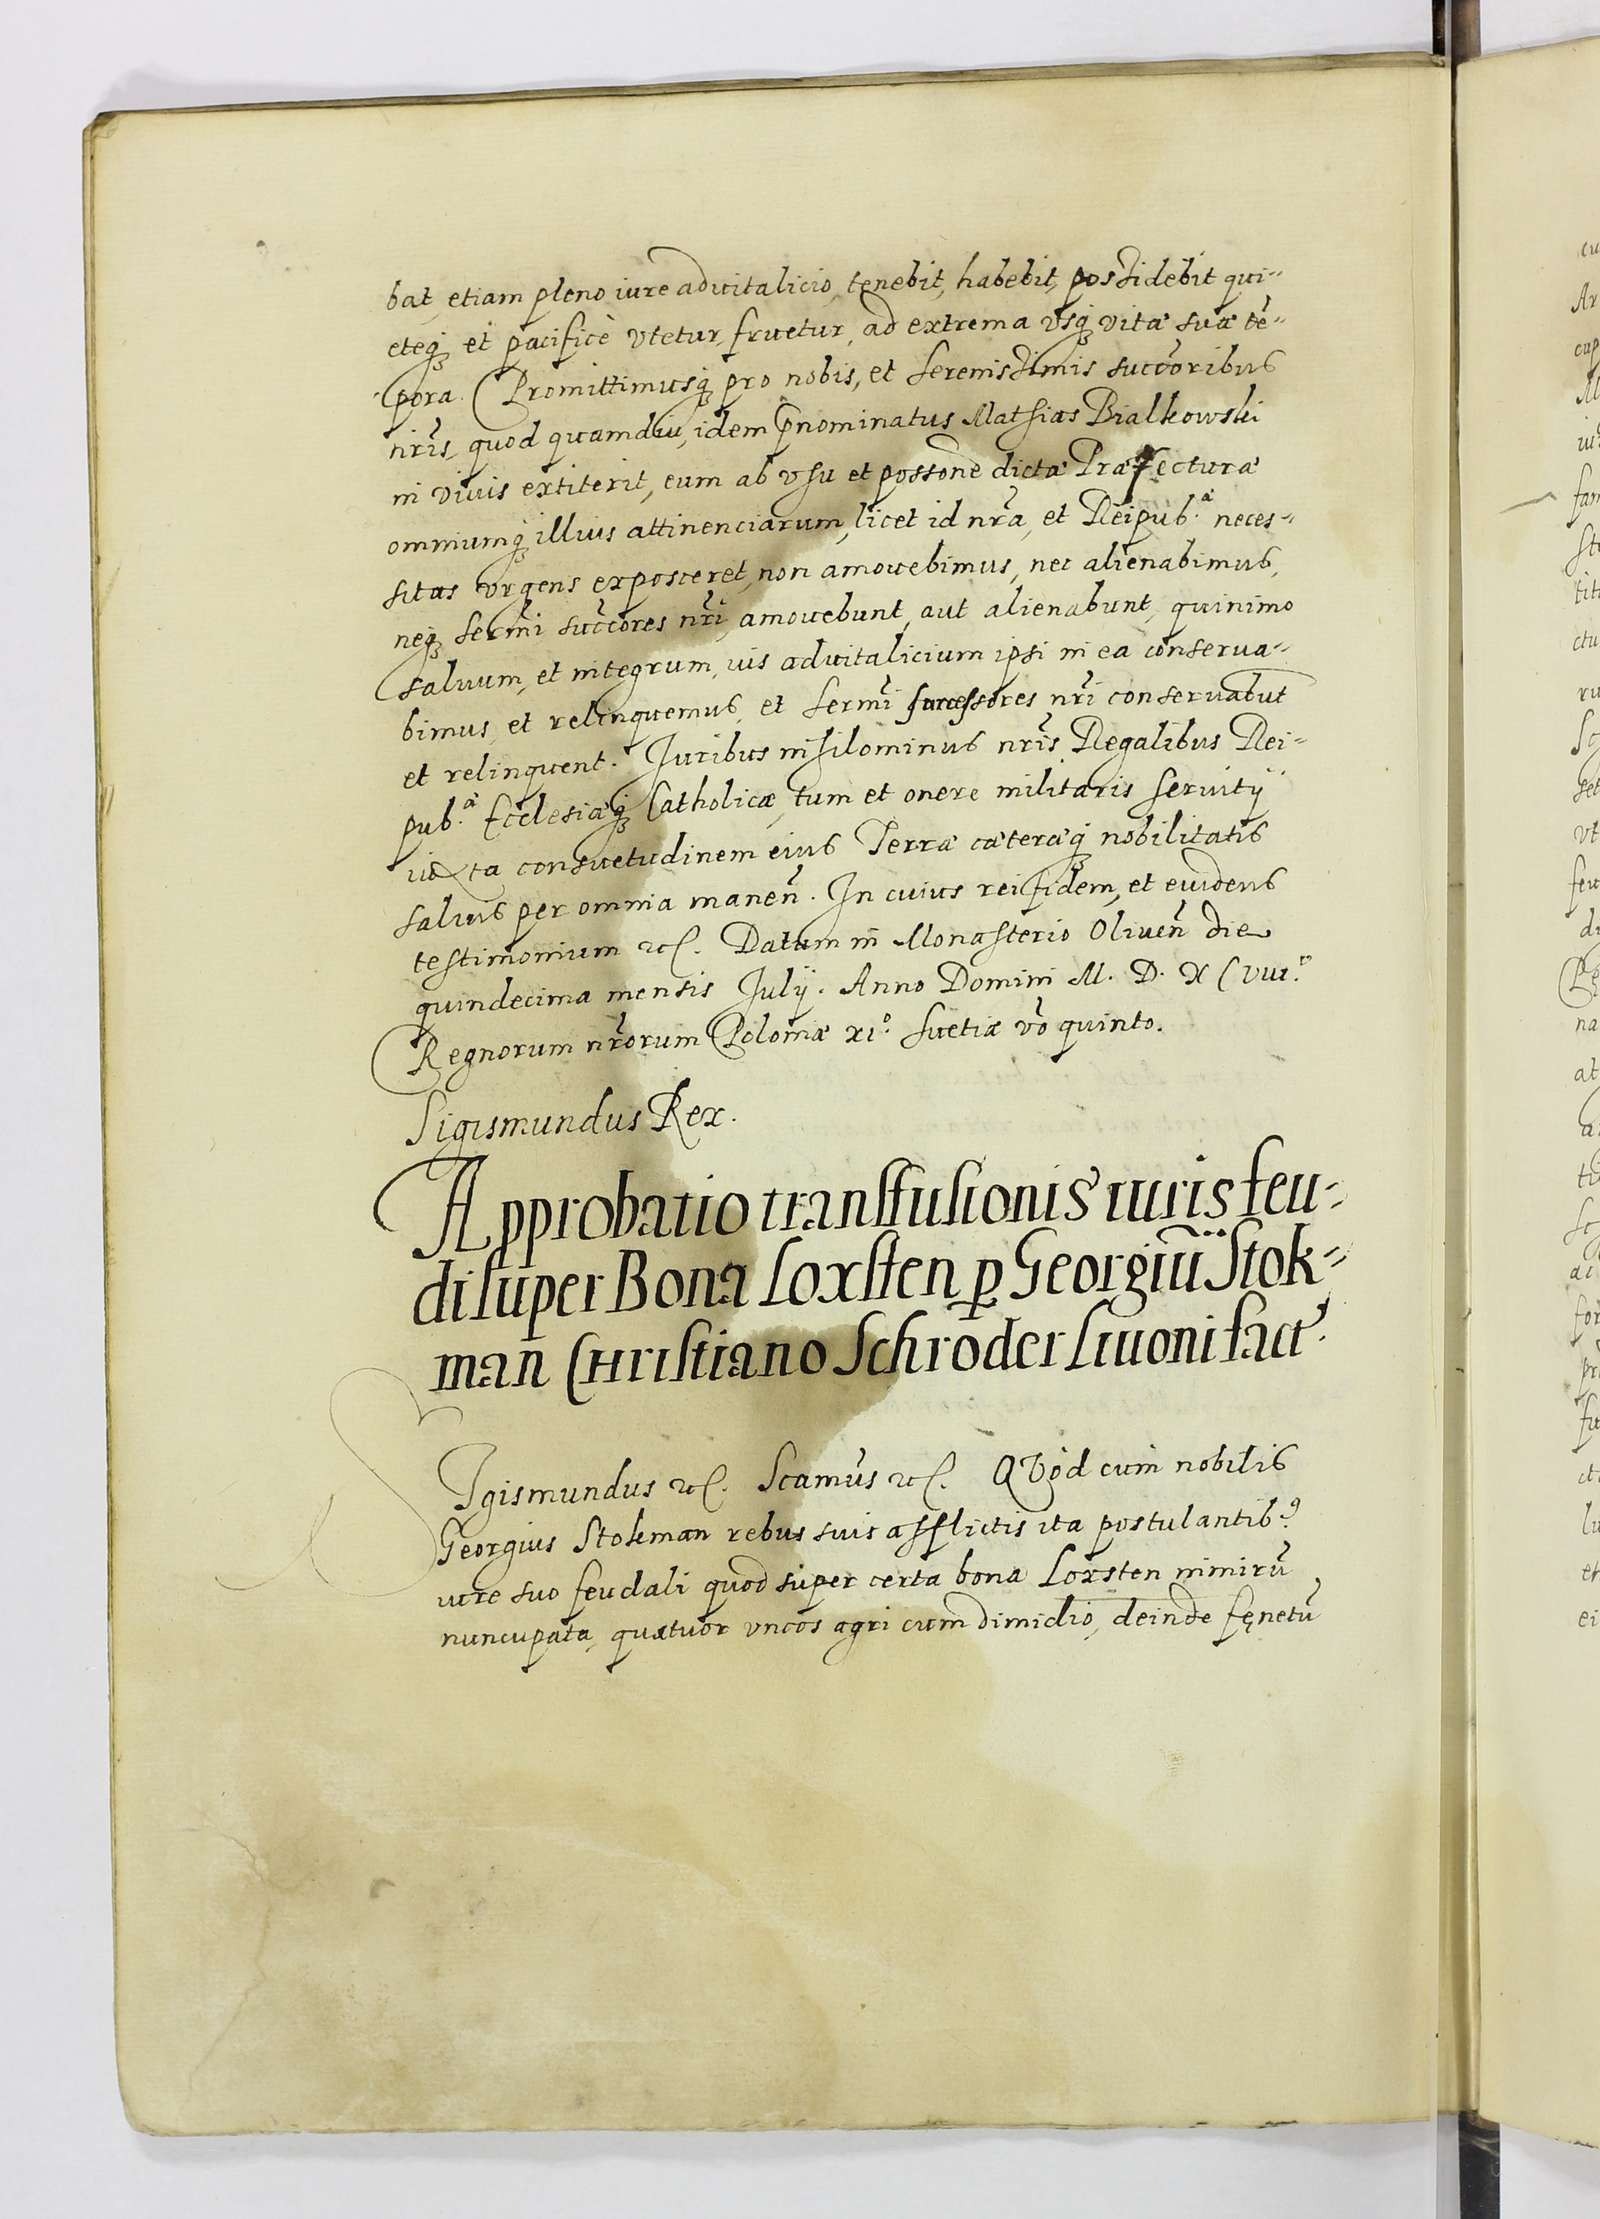 bat, etiam pleno iure aduitalicio, tenebit, habebit, possidebit qui-
eteq́ʒ et pacificè vtetur, fruetur, ad extrema vsq́ʒ vitæ suæ tē-
pora. Promittimusq́ʒ pro nobis, et serenissimis succoribus
nr̄is, quod quamdiu, idem p̄nominatus Mathias Bialkowski
in viuis extiterit, eum ab vsu et posson̄e dictæ Præfecturæ
omniumq́ʒ illius attinenciarum, licet id nr̄a, et Reipub.ᵃ neces-
sitas vrgens exposceret, non amouebimus, nec alienabimus,
neqʒ serm̄i succ̄ores nr̄i, amouebunt, aut alienabunt, quinimo
saluum, et integrum, ius aduitalicium ipsi in ea conserua-
bimus, et relinquemus, et serm̄i successores nr̄i conseruabūt
et relinquent. Iuribus nihilominus nr̄is Regalibus Rei-
pub.ᵃ Ecclesiæq́ʒ Catholicæ, tum et onere militaris seruitÿ
iuxta consuetudinem eius Terræ cæteræq́ʒ nobilitatis
saluis per omnia manen̄. In cuius rei fidem, et euidens
testimonium etc. Datum in Monasterio Oliuen̄ die
quindecima mensis Julÿ. Anno Domini M. D. X C VIII.º
Regnorum nr̄orum Poloniæ xi.º Suetiæ vō quinto.
Sigismundus Rex.
Approbatio transfusionis iuris feu-
di super Bona Loxsten p̱ Georgiū Stok-
man Christiano Schroder Liuoni fact.
SIgismundus etc. Scamūs etc. QVod cum nobilis
Georgius Stokman rebus suis afflictis ita postulantib.⁹
iure suo feudali quod super certa bona Loxsten nimirū
nuncupata, quatuor vncos agri cum dimidio, deinde fęnetū